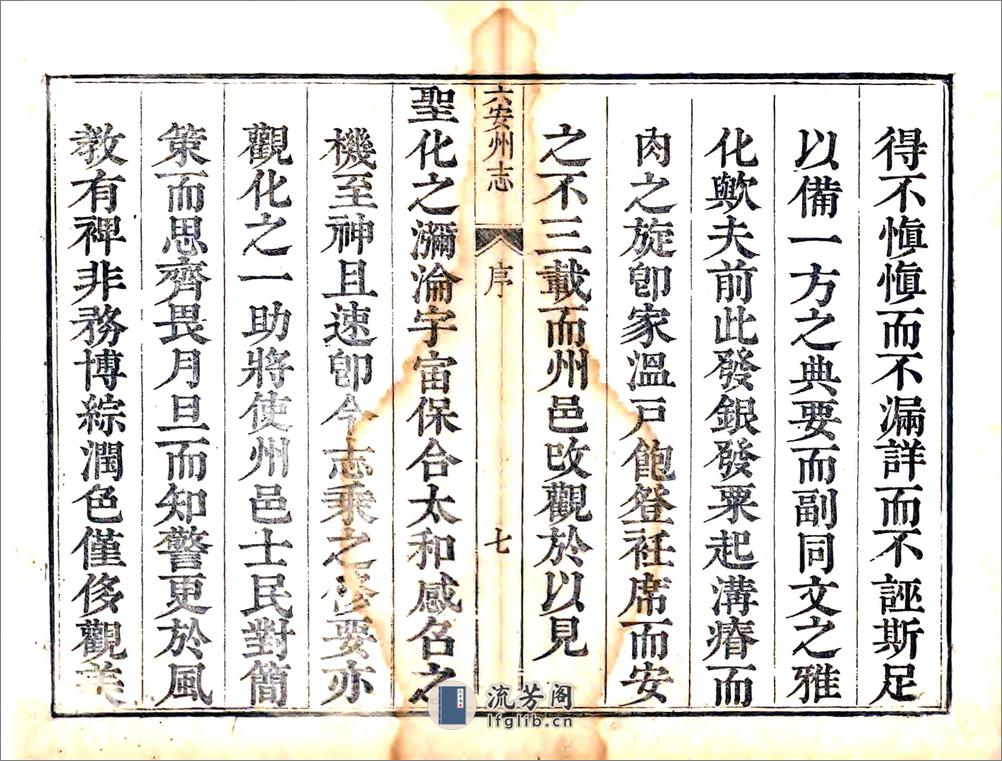 得不慎慎而不漏詳而不誣斯足
以備一方之典要而副同文之雅
化歟夫前此發銀發粟起溝瘠而
肉之旋卽家溫戸飽登袵席而安
之不三載而州邑改觀於以見
六安州志
序
七
聖化之瀰淪宇宙保合太和感名之
機至神且速卽今志乘之修要亦
觀化之一助將使州邑士民對簡
策而思齊畏月旦而知警更於風
教有裨非務博綜潤色僅侈觀美
流芳阁
lfglib.cn